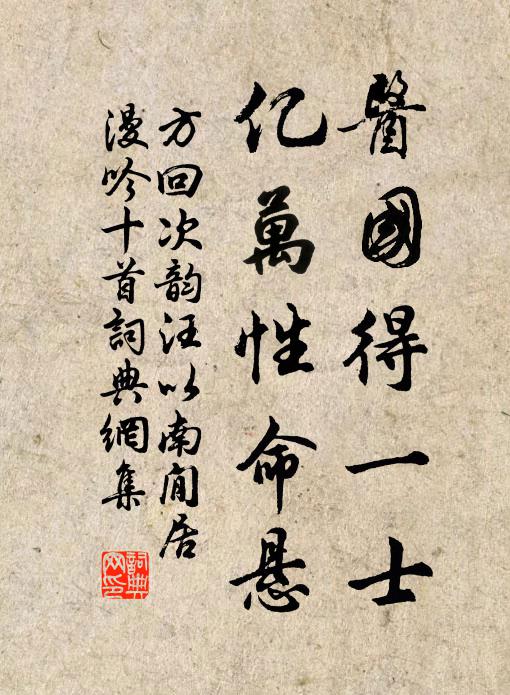 醫國得一士
亿萬性命悬
方回次韵汪以南闲居
漫吟十首詞典網集
詞典网印